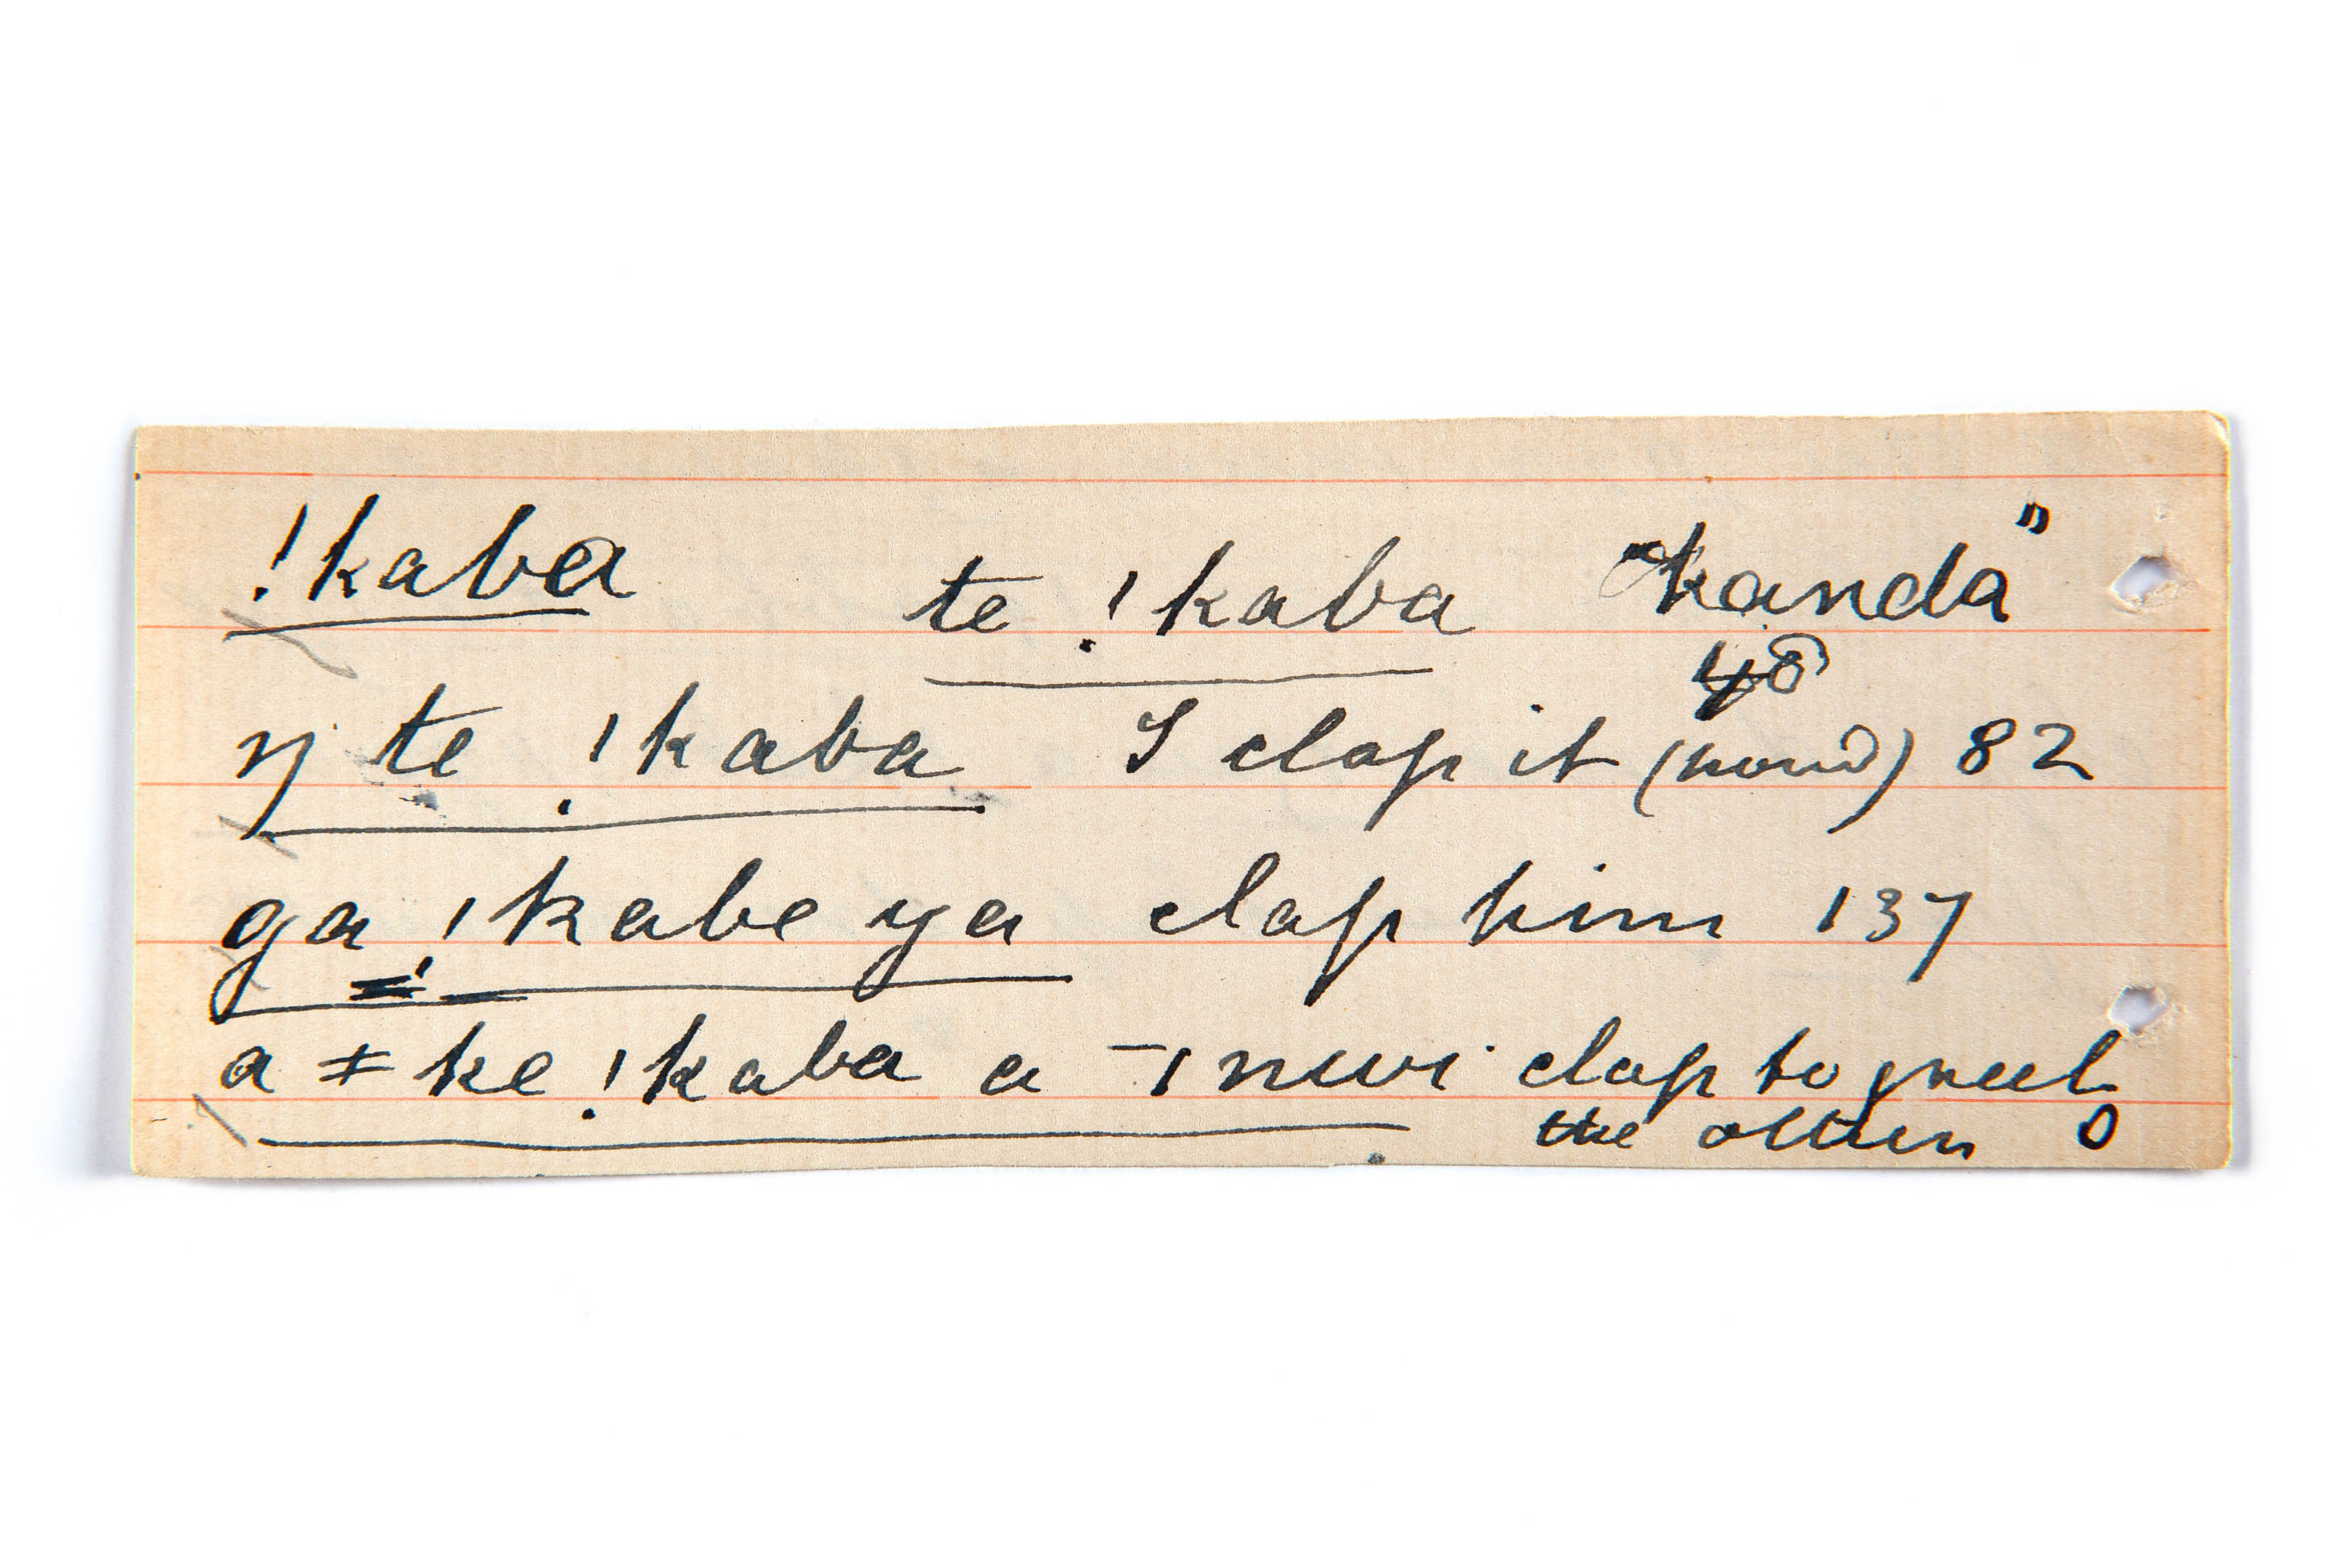 !kaba te !kaba "kanda"
48
ŋ te !kaba I clap it (now) 82
ga !kabe ya clap him 137
a ǂ ke !kaba a ‾ ǀ nwi clap to greet
the other 0